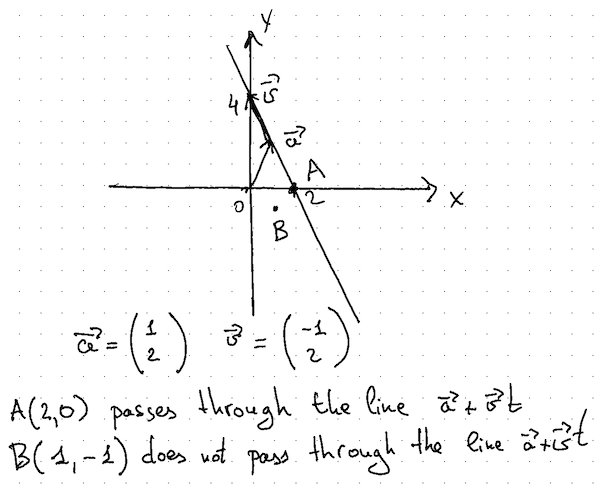 y
4 v⃗
a⃗
A
0 2 x
B
a⃗ = (1 2) v⃗ = (-1 2)
A(2,0) passes through the line a⃗ + v⃗t
B(1,-1) does not pass through the line a⃗+v⃗t